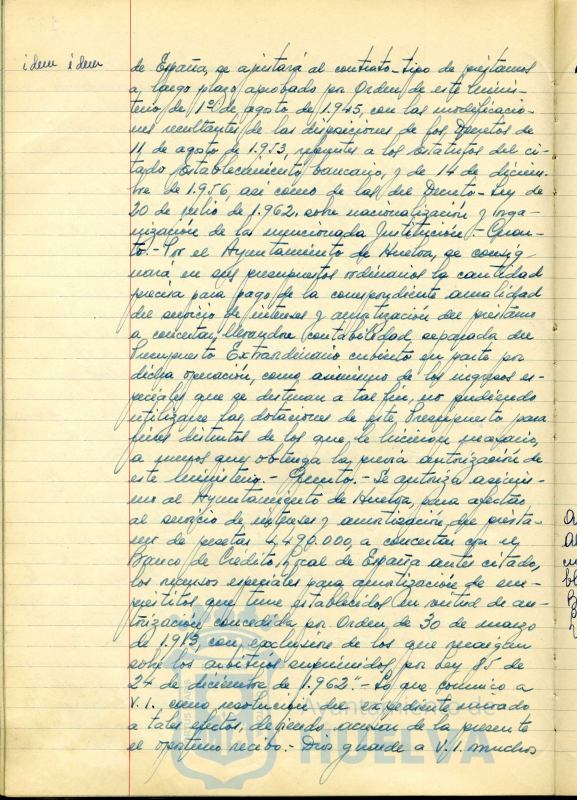 idem idem
de España, se ajustará al contrato-tipo de préstamos
a largo plazo aprobado por Orden de este Minis-
terio de 1º de agosto de 1.945, con las modificacio-
nes resultantes de las disposiciones de los Decretos de
11 de agosto de 1.953, referentes a los Estatutos del ci-
tado Establecimiento bancario, y de 14 de diciem-
bre de 1.956, así como de las del Decreto-Ley de
20 de julio de 1.962, sobre nacionalización y orga-
nización de la mencionada Institución.- Cuar-
to.- Por el Ayuntamiento de Huelva, se consig-
nará en sus presupuestos ordinarios la cantidad
precisa para pago de la correspondiente anualidad
del servicio de intereses y amortización del préstamo
a concertar, llevándose contabilidad separada del
Presupuesto Extraordinario cubierto en parte por
dicha operación, como asimismo de los ingresos es-
peciales que se destinan a tal fin, no pudiendo
utilizarse las dotaciones de este Presupuesto para
fines distintos de los que le hicieron necesario,
a menos que obtenga la previa autorización de
este Ministerio.- Quinto.- Se autoriza asimis-
mo al Ayuntamiento de Huelva para afectar
al servicio de intereses y amortización del présta-
mo de pesetas 4.490.000, a concertar con el
Banco de Crédito Local de España antes citado,
los recursos especiales para amortización de em-
préstitos que tiene establecidos en virtud de au-
torización concedida por Orden de 30 de marzo
de 1.953 con exclusión de los que recaigan
sobre los arbitrios suprimidos por Ley 85 de
24 de diciembre de 1.962".- Lo que comunico a
V.I. como resolución del expediente incoado
a tales efectos, debiendo acusar de la presente
el oportuno recibo.- Dios guarde a V.I. muchos
Ayuntamiento de
HUELVA